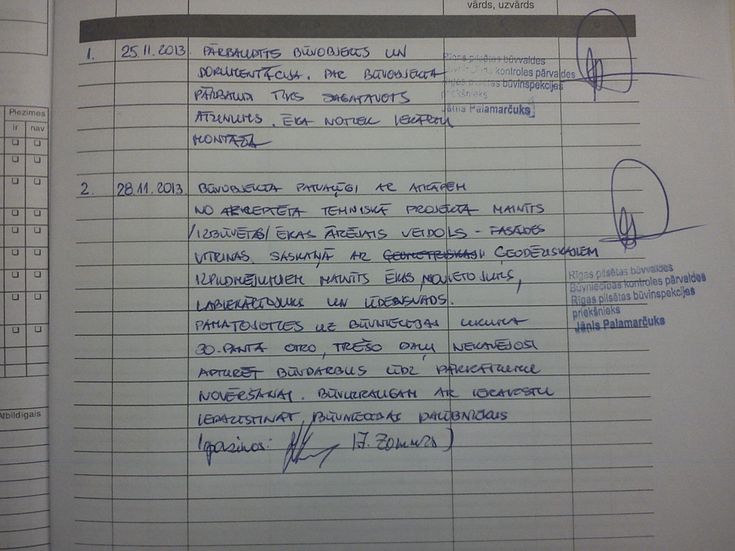 vārds, uzvārds
1. 25.11.2013. PĀRBAUDĪTS BŪVOBJEKTS UN
DOKUMENTĀCIJA. PAR BŪVOBJEKTA
PĀRBAUDI TIKS SAGATAVOTS
ATZINUMS. ĒKĀ NOTIEK IEKĀRTU
MONTĀŽA
Rīgas pilsētas būvvaldes
kontroles pārvaldes
Rīgas pilsētas būvinspekcijas
priekšnieks
Jānis Palamarčuks
Piezīmes
ir nav
2. 28.11.2013. BŪVOBJEKTĀ PATVAĻĪGI AR ATKĀPĒM
NO AKCEPTĒTĀ TEHNISKĀ PROJEKTA MAINĪTS
/IZBŪVĒTAS/ ĒKAS ĀRĒJAIS VEIDOLS - FASĀDES
VITRĪNAS. SASKAŅĀ AR ĢEODĒZISKAJIEM
IZPILDMĒRĪJUMIEM MAINĪTS ĒKAS NOVIETOJUMS,
LABIEKĀRTOJUMS UN ŪDENSVADS.
PAMATOJOTIES UZ BŪVNIECĪBAS LIKUMA
30. PANTA OTRO, TREŠO DAĻU NEKAVĒJOŠI
APTURĒT BŪVDARBUS LĪDZ PĀRKĀPUMU
NOVĒRŠANAI. BŪVUZRAUGAM AR IERAKSTU
IEPAZĪSTINĀT BŪVNIECĪBAS DALĪBNIEKUS
Rīgas pilsētas būvvaldes
Būvniecības kontroles pārvaldes
Rīgas pilsētas būvinspekcijas
priekšnieks
Jānis Palamarčuks
Atbildīgais